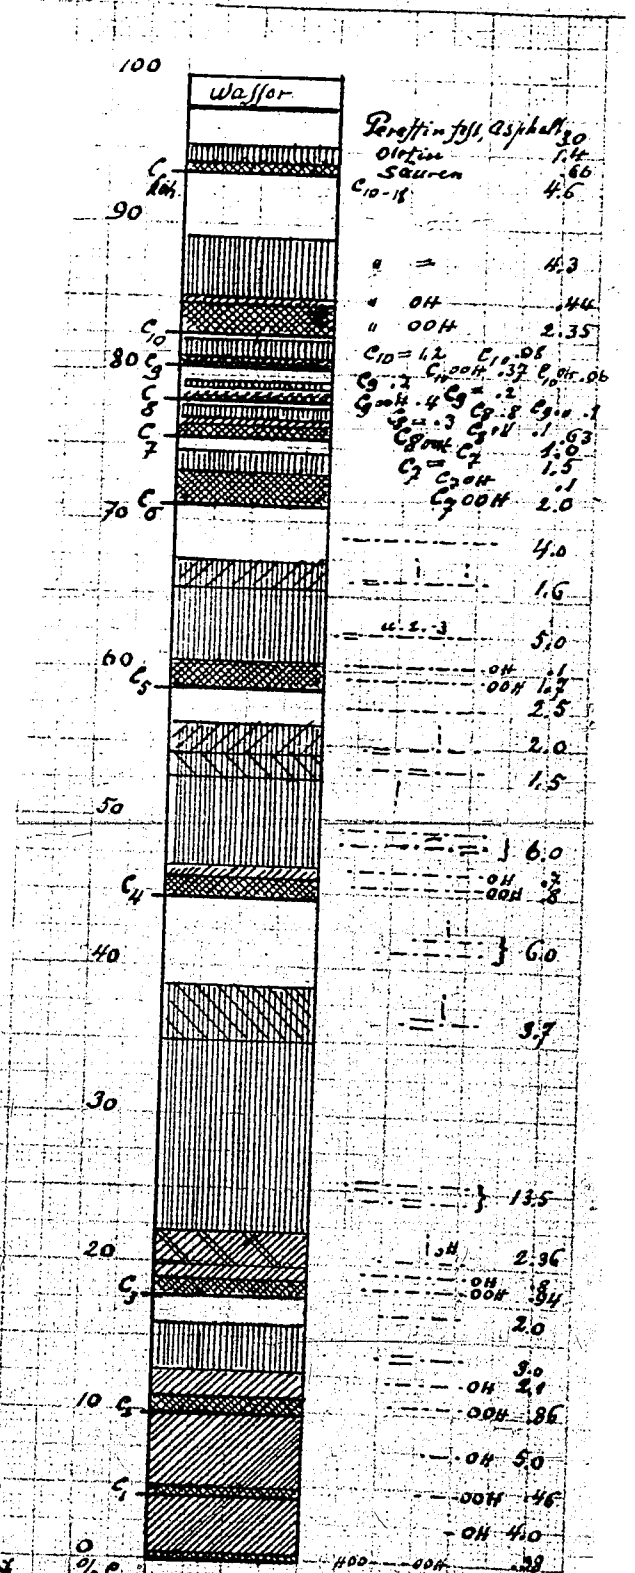 100
Wasser
Paraffin fest, Asphalt 30
Olefin 1.4
Säuren .66
C10-18 4.6
C
90
" = 4.3
" OH .44
" OOH 2.35
C10
C10= 1.2 C10 .08
80 C9
C10OOH .37 C10OH .06
C9 .2 C9= .2
C8
C9OOH .4 C8 .8 C9 .1
C8= .3 C8OH .1
C8OOH .63
C7
C7 1.0
C7= 1.5
C7OH .1
70 C6
C7OOH 2.0
4.0
1.6
u. 2.-3
5.0
60
OH .1
C5
OOH 1.7
2.5
2.0
1.5
50
} 6.0
OH .2
C4
OOH .8
40
} 6.0
3.7
30
} 13.5
20
OH 2.36
OH .8
C3
OOH .94
2.0
3.0
OH 2.1
10 C2
OOH .86
OH 5.0
C1
OOH .46
OH 4.0
0
HOO OOH .38
%